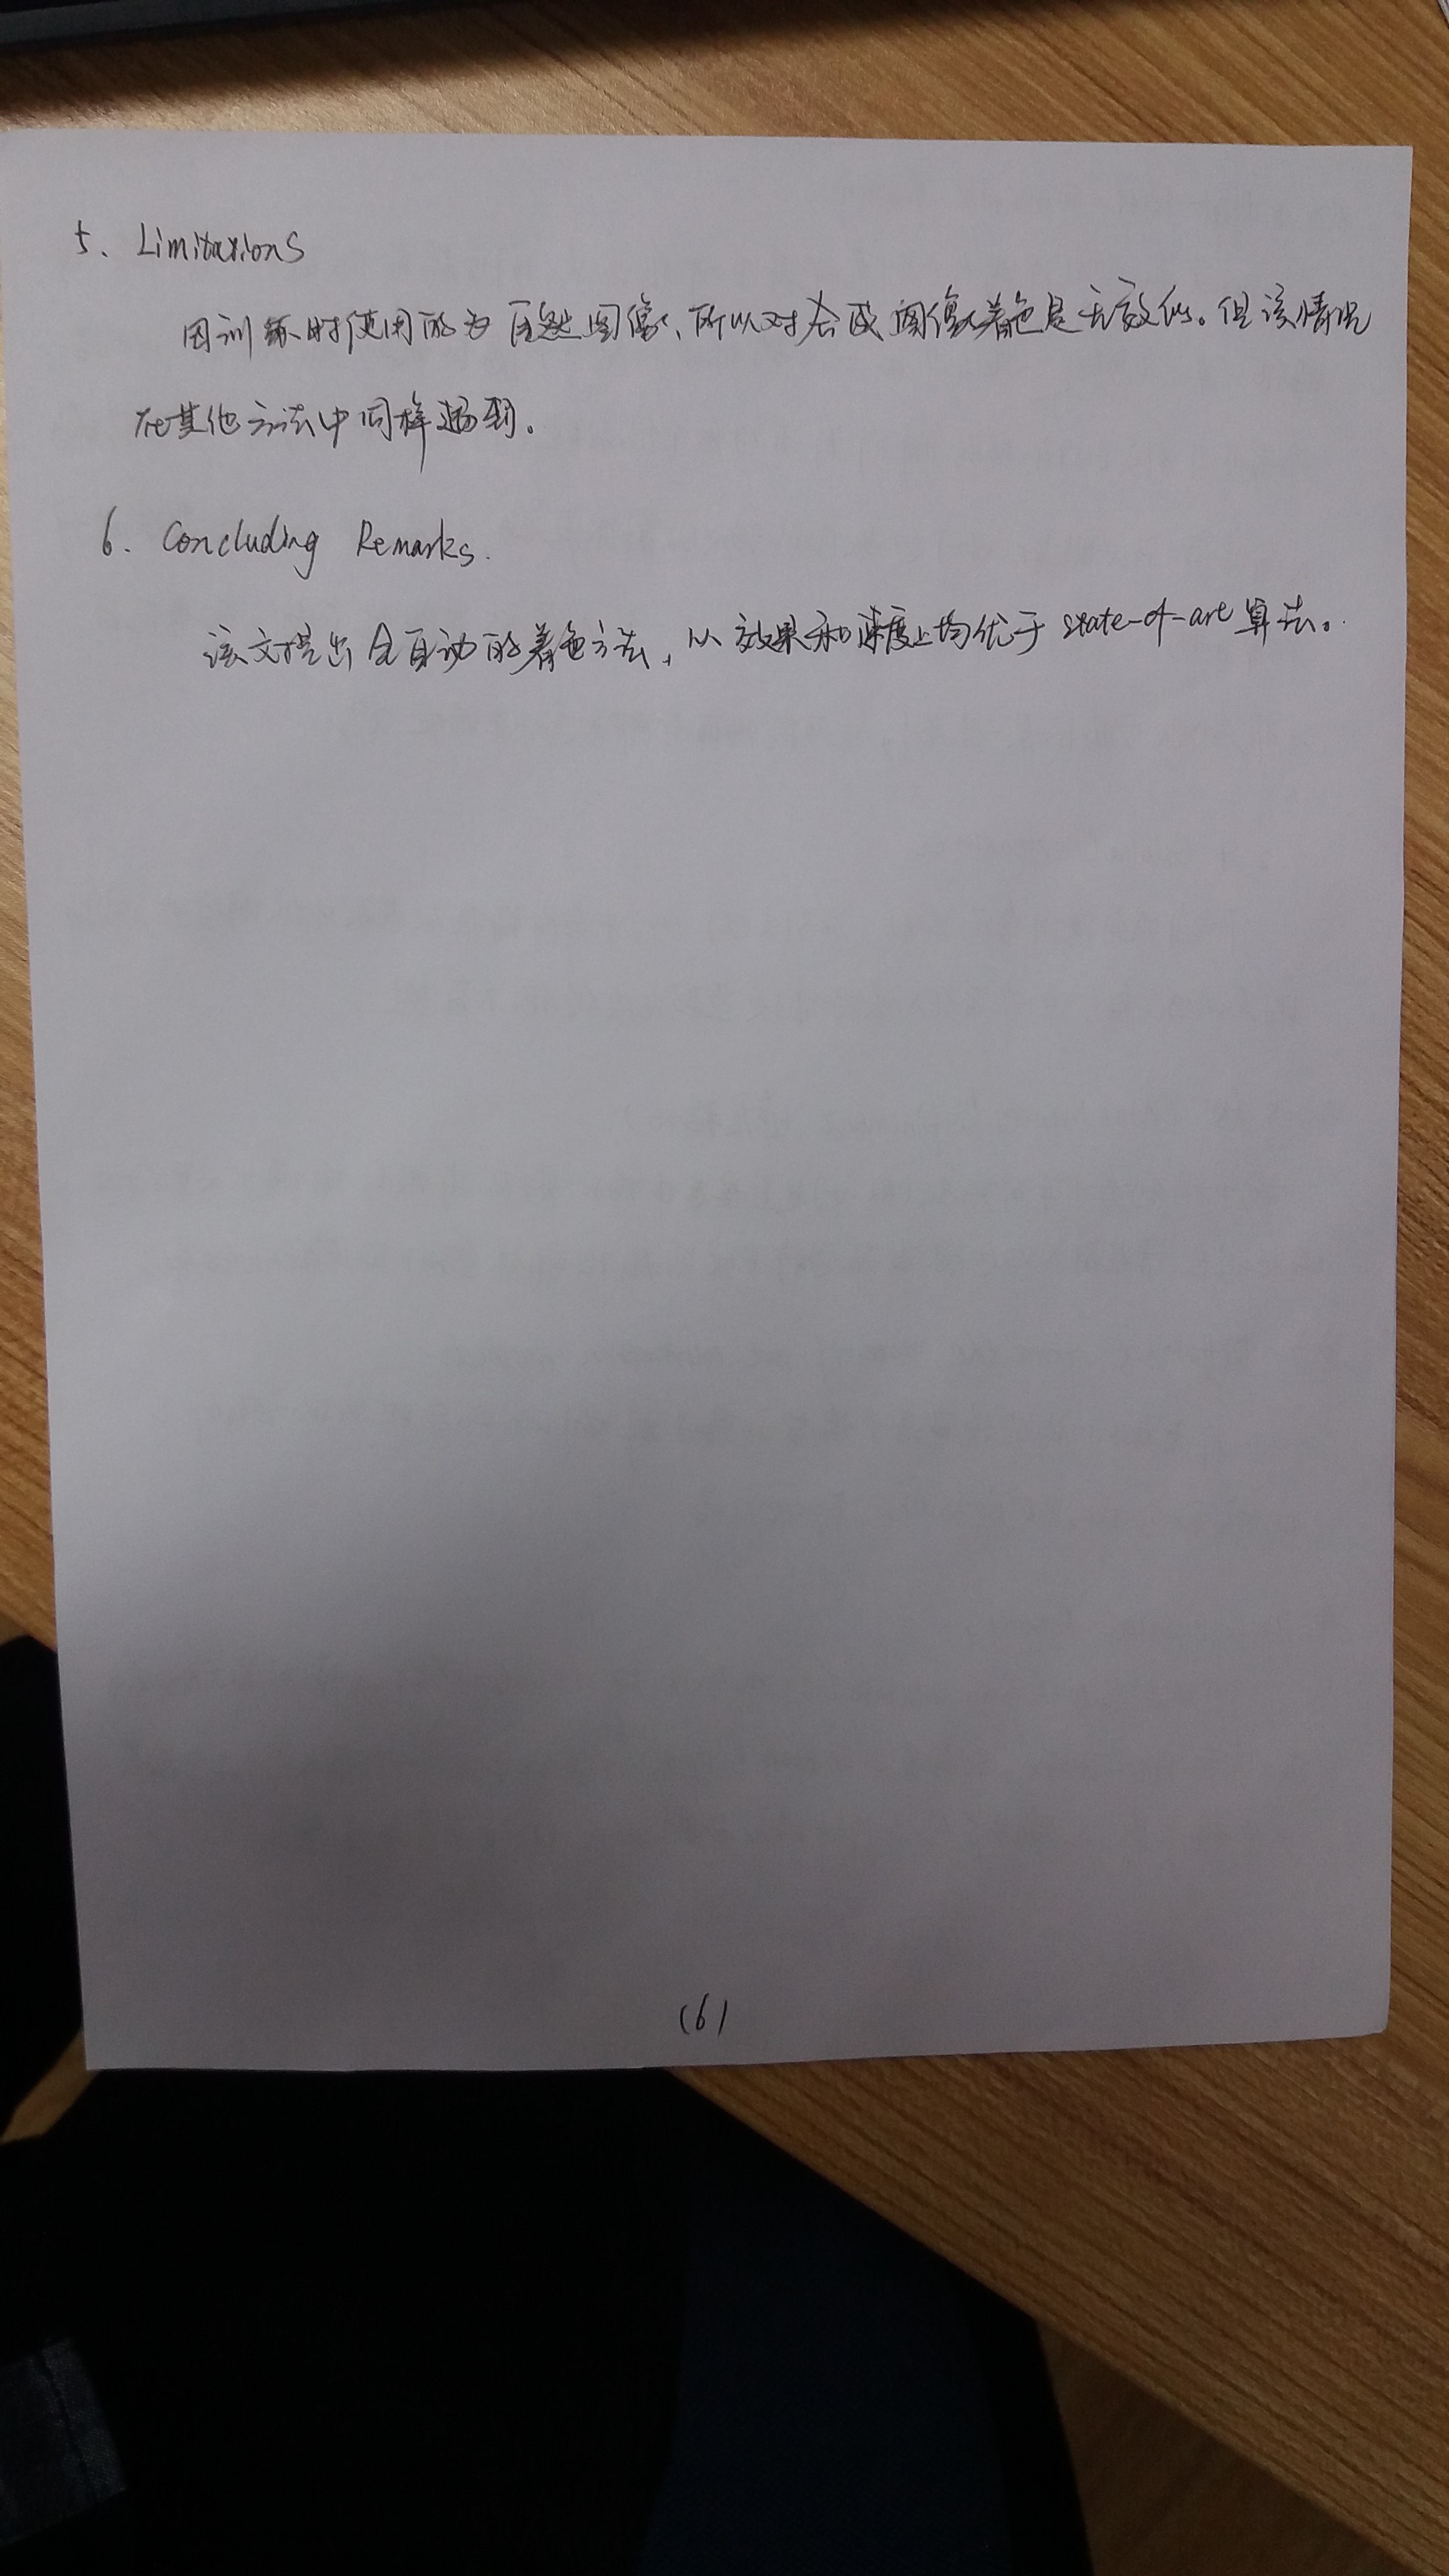 5. Limitations
因训练时使用的为自然图像，所以对合成图像着色是无效的。但该情况
在其他方法中同样遇到。
6. Concluding Remarks.
该文提出全自动的着色方法，从效果和速度上均优于 state-of-art 算法。
(6)